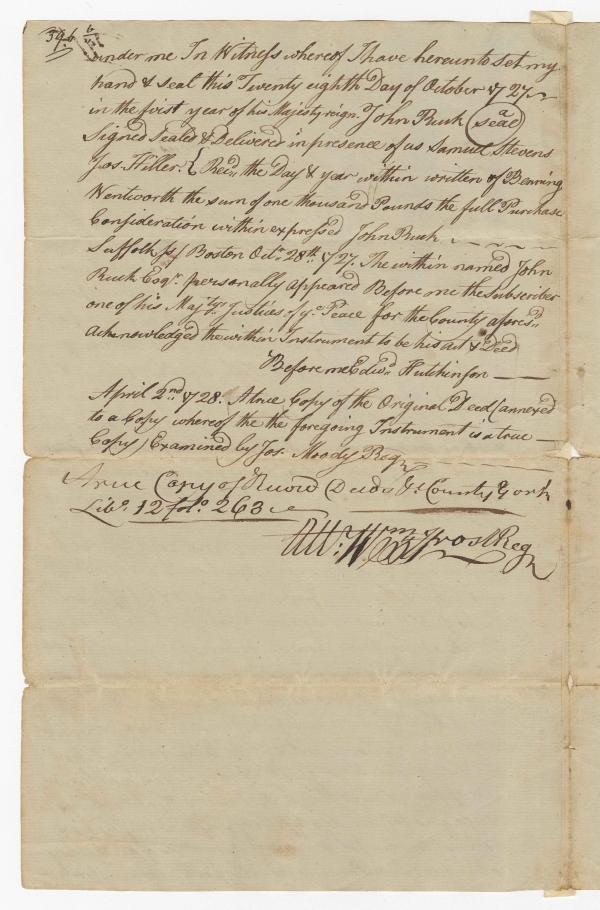 under me In Witness whereof I have hereunto set my
hand & seal this Twenty eighth Day of October 1727
in the first year of his Majesty reign. John Ruck (a seal)
Signed Sealed & Delivered in presence of us Samuel Stevens
Jos. Hiller. { Recd. the Day & year within written of Benning
Wentworth the sum of one thousand Pounds the full Purchase
Consideration within expressed John Ruck
Suffolk ss/ Boston Octo. 28th. 1727. The within named John
Ruck Esqr. personally appeared Before me the Subscriber
one of his Majtys. Justices of ye. Peace for the County aforesd.
Acknowledged the within Instrument to be his act & Deed
Before me Edwd. Hutchinson
April 2nd. 1728. A true Copy of the Original Deed (annexed
to a Copy whereof the the foregoing Instrument is a true
Copy) Examined by Jos. Moody Regr
A true Copy of Record Deeds &c County York
Libo. 12 folo. 263
Att. Wm Frost Regr